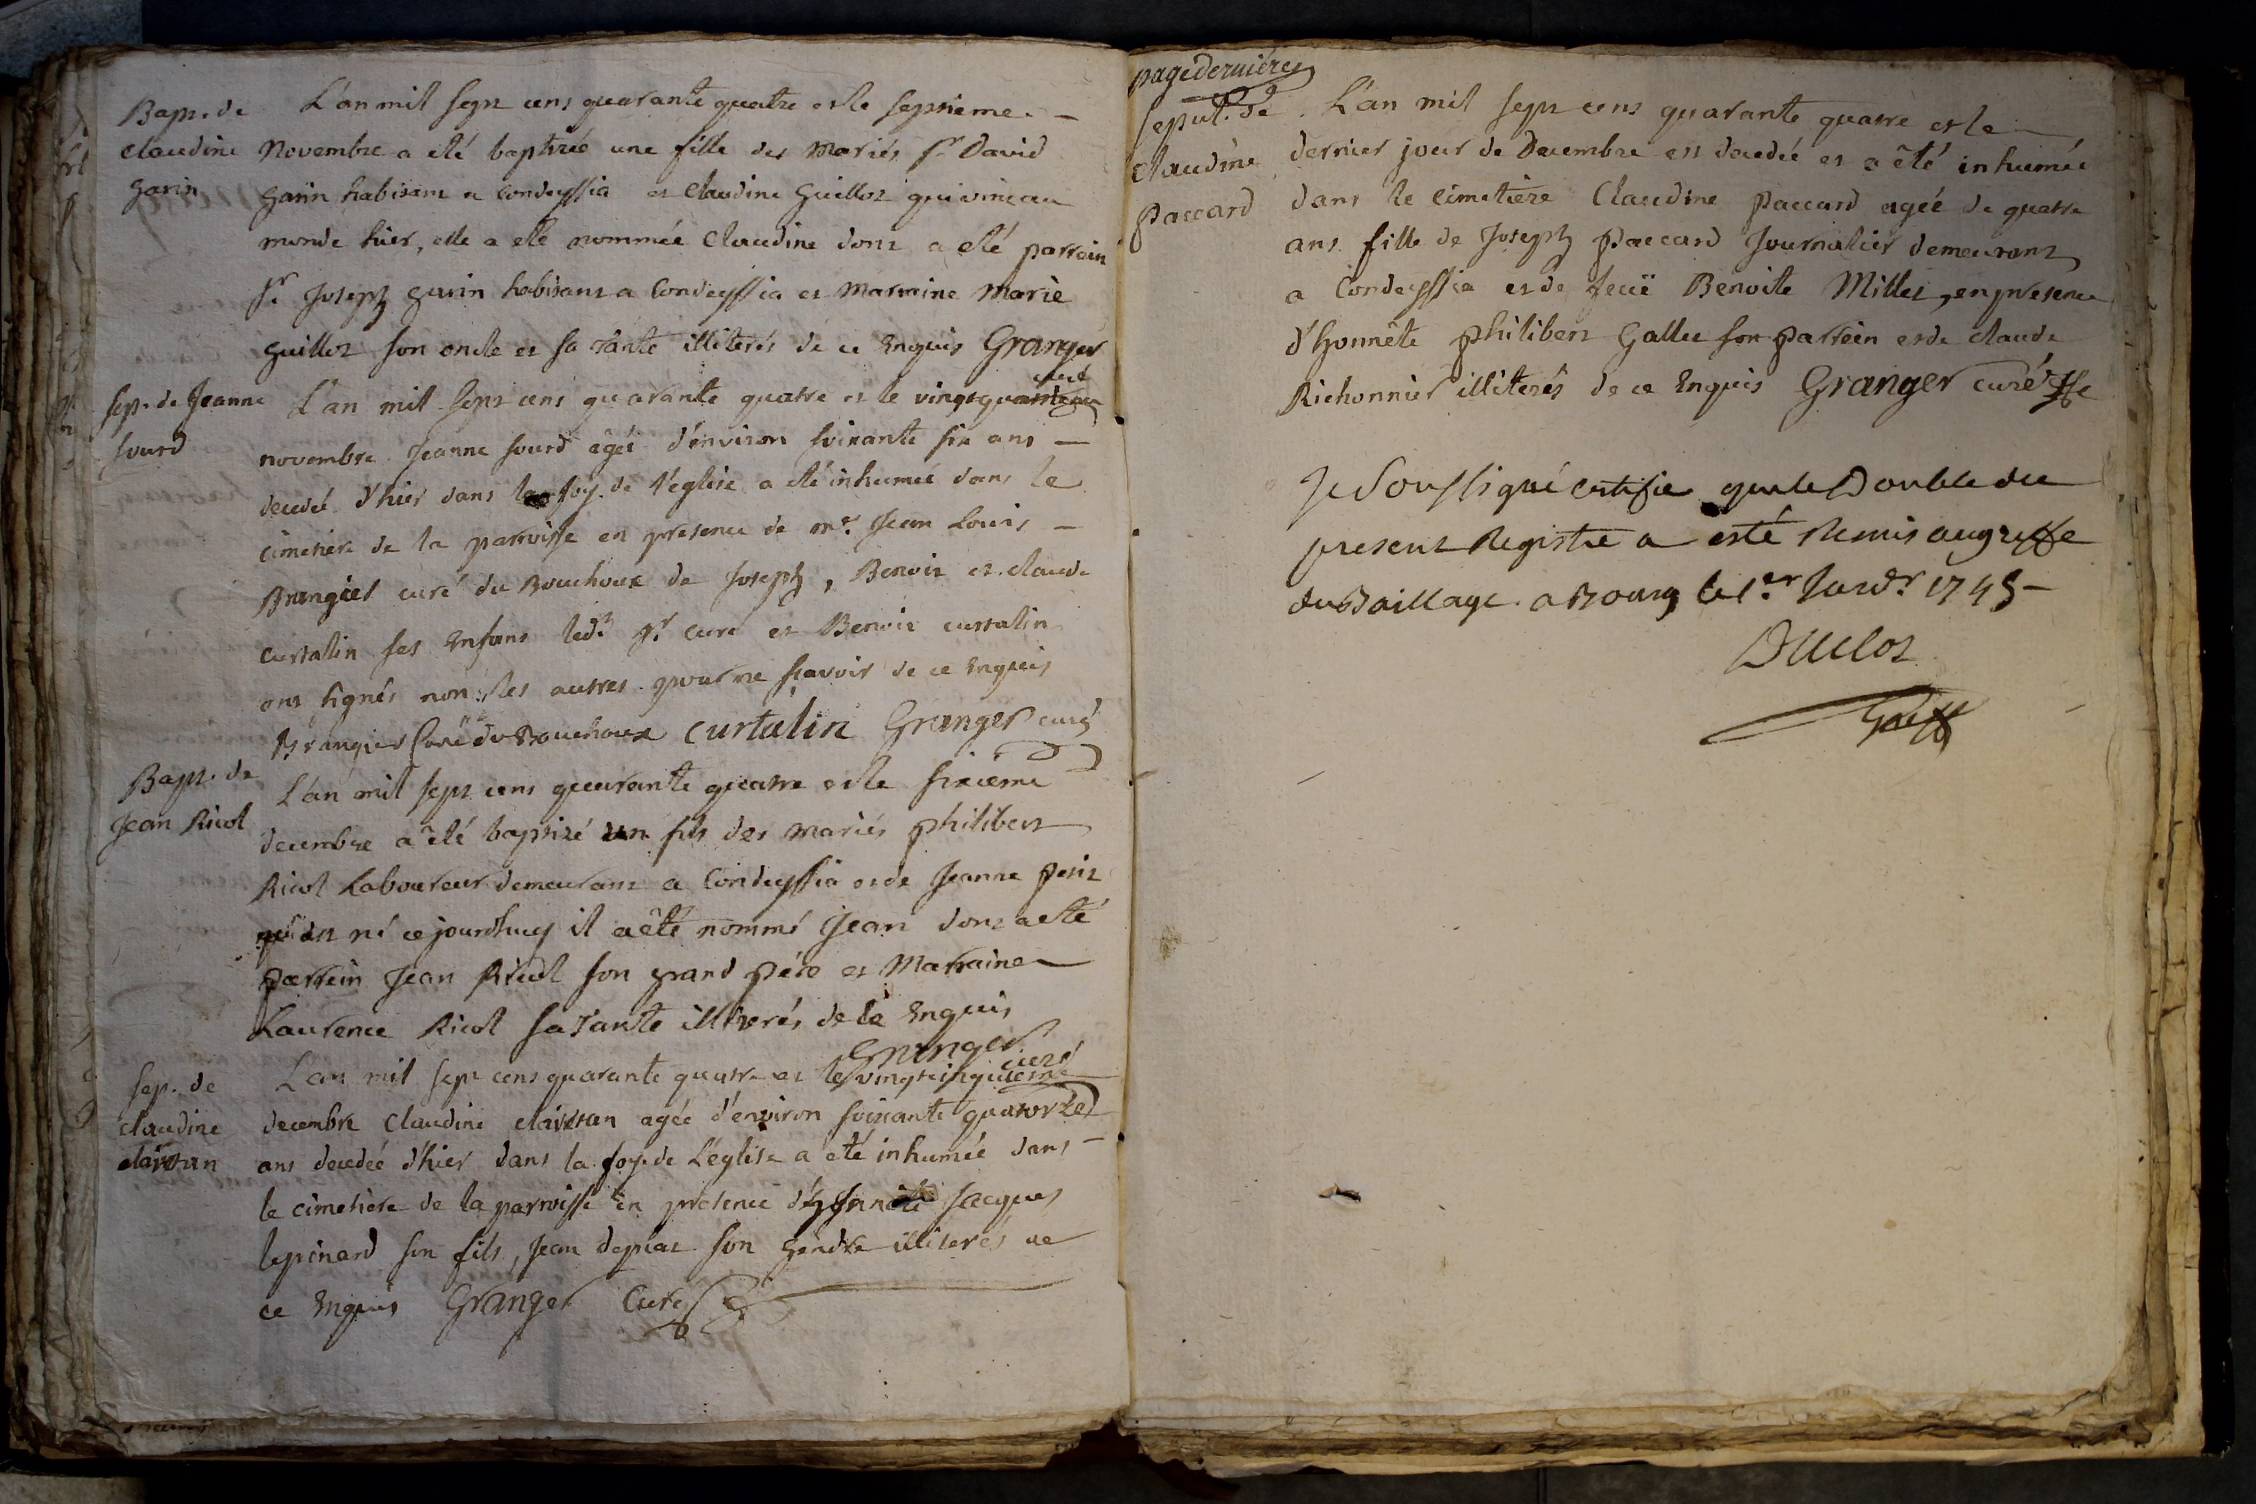 Bapt. de
claudine
garin
L'an mil sept cens quarante quatre et le septieme
Novembre a été baptizée une fille des mariés sr. David
garin habitant a condeyssia et claudine guillot qui vint au
monde hier, elle a eté nommée claudine dont a eté parrain
sr. joseph garin habitant a condeyssia et marraine marie
guillot son oncle et sa tante illiterés de ce enquis Granger
curé
sep. de jeanne
sourd
L'an mil sept cens quarante quatre et le vingt quatre
novembre jeanne sourd agée d'environ soixante six ans
decedée d'hier dans la foy de l'eglise a eté inhumée dans le
cimetiere de la parroisse en presence de mre. jean Louis
Brangier curé du Bouchoux de joseph, Benoit et claude
curtalin ses enfans ledt. sr. curé et Benoit curtalin
ont signés non les autres pour ne sçavoir de ce enquis
Brangier Curé du Bouchoux curtalin Granger curé
Bapt. de
jean Ricol
L'an mil sept cens quarante quatre et le sixieme
decembre a été baptizé un fils des mariés philibert
Ricol Laboureur demeurant a Condeyssia et de jeanne petit
qui est né cejourdhuy il a été nommé jean dont a eté
parrein jean Ricol son grand pére et Marraine
Laurence Ricol sa tante illiterés de ce enquis
Granger
curé
sep. de
claudine
L'an mil sept cens quarante quatre et le vingtcinquieme
decembre claudine agée d'environ soixante quatorze
ans decedée d'hier dans la foy de L'eglise a eté inhumée dans
le cimetiere de la parroisse en presence d'honnete jacques
lepinard son fils, jean son gendre illiterés de
ce enquis Granger Curé
page derniére
sepult. de
claudine
paccard
L'an mil sept cens quarante quatre et le
dernier jour de Decembre est decedée et a été inhumée
dans le cimetiere Claudine paccard agée de quatre
ans fille de joseph paccard journalier demeurant
a Condeyssia et de feüe Benoite Millet, en presence
d'honnête philibert gallet son parrein et de claude
Richonnier illiterés de ce enquis Granger curé
Je Soussigné certifie que le Double du
present Registre a esté Remis au greffe
du Baillage a Bourg le 1er Janvr 1745
Duclos
Greff